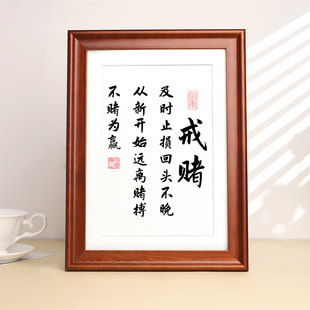 戒赌
及时止损回头不晚
从新开始远离赌搏
不赌为赢